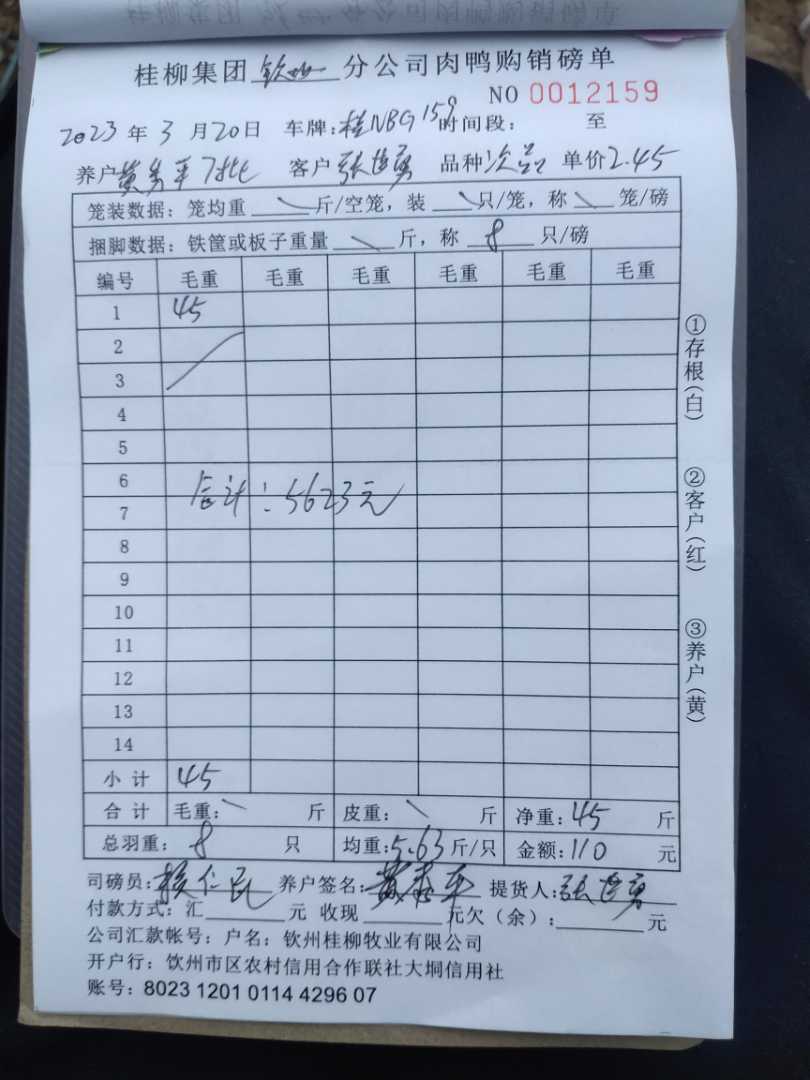 桂柳集团 钦州 分公司肉鸭购销磅单
NO 0012159
2023 年 3 月 20 日 车牌：桂NBG159 时间段： 至
养户 黄 平 客户 张 勇 品种 次品 单价 2.45
笼装数据：笼均重 \ 斤/空笼，装 \ 只/笼，称 \ 笼/磅
捆脚数据：铁筐或板子重量 \ 斤，称 8 只/磅
编号 毛重 毛重 毛重 毛重 毛重 毛重
1 45
2
3
4
5
6
合计：5623元
7
8
9
10
11
12
13
14
小 计 45
合 计 毛重：\ 斤 皮重：\ 斤 净重：45 斤
总羽重： 8 只 均重：5.63 斤/只 金额：110 元
司磅员： 仁 养户签名：黄 平 提货人：张 勇
付款方式：汇 元 收现 元欠（余）： 元
公司汇款帐号：户名：钦州桂柳牧业有限公司
开户行：钦州市区农村信用合作联社大垌信用社
账号：8023 1201 0114 4296 07
①存根（白）
②客户（红）
③养户（黄）